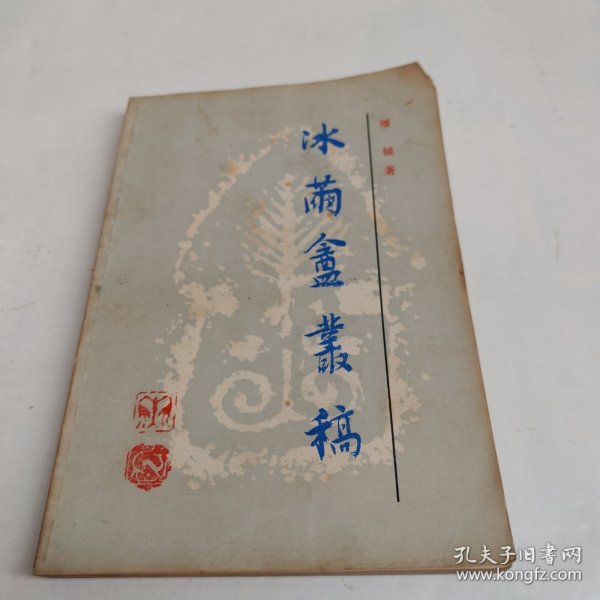 冰繭盦叢稿
缪钺著
孔夫子旧书网
www.kongfz.com